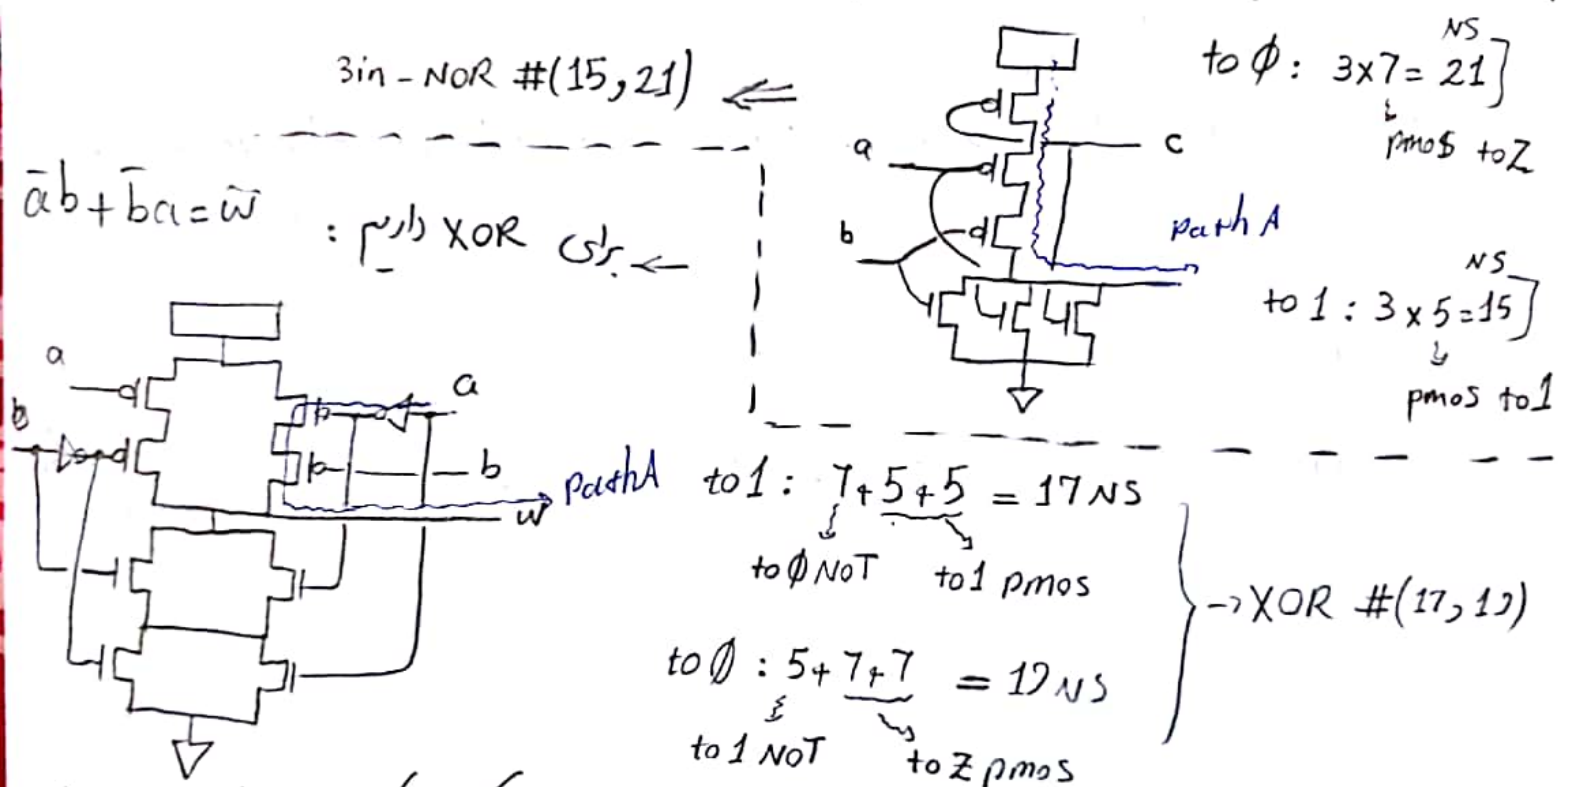 3in - NOR #(15,21) ⇐
to ∅ : 3×7 = 21 NS ]
pmos to Z
a
b
c
path A
to 1 : 3×5 = 15 NS ]
pmos to 1
āb + b̄a = w̄
← برای XOR داریم :
a
b
a
b
w
path A
to 1 : 7 + 5 + 5 = 17 NS
to ∅ NOT
to 1 pmos
to ∅ : 5 + 7 + 7 = 19 NS
to 1 NOT
to Z pmos
→ XOR #(17,19)